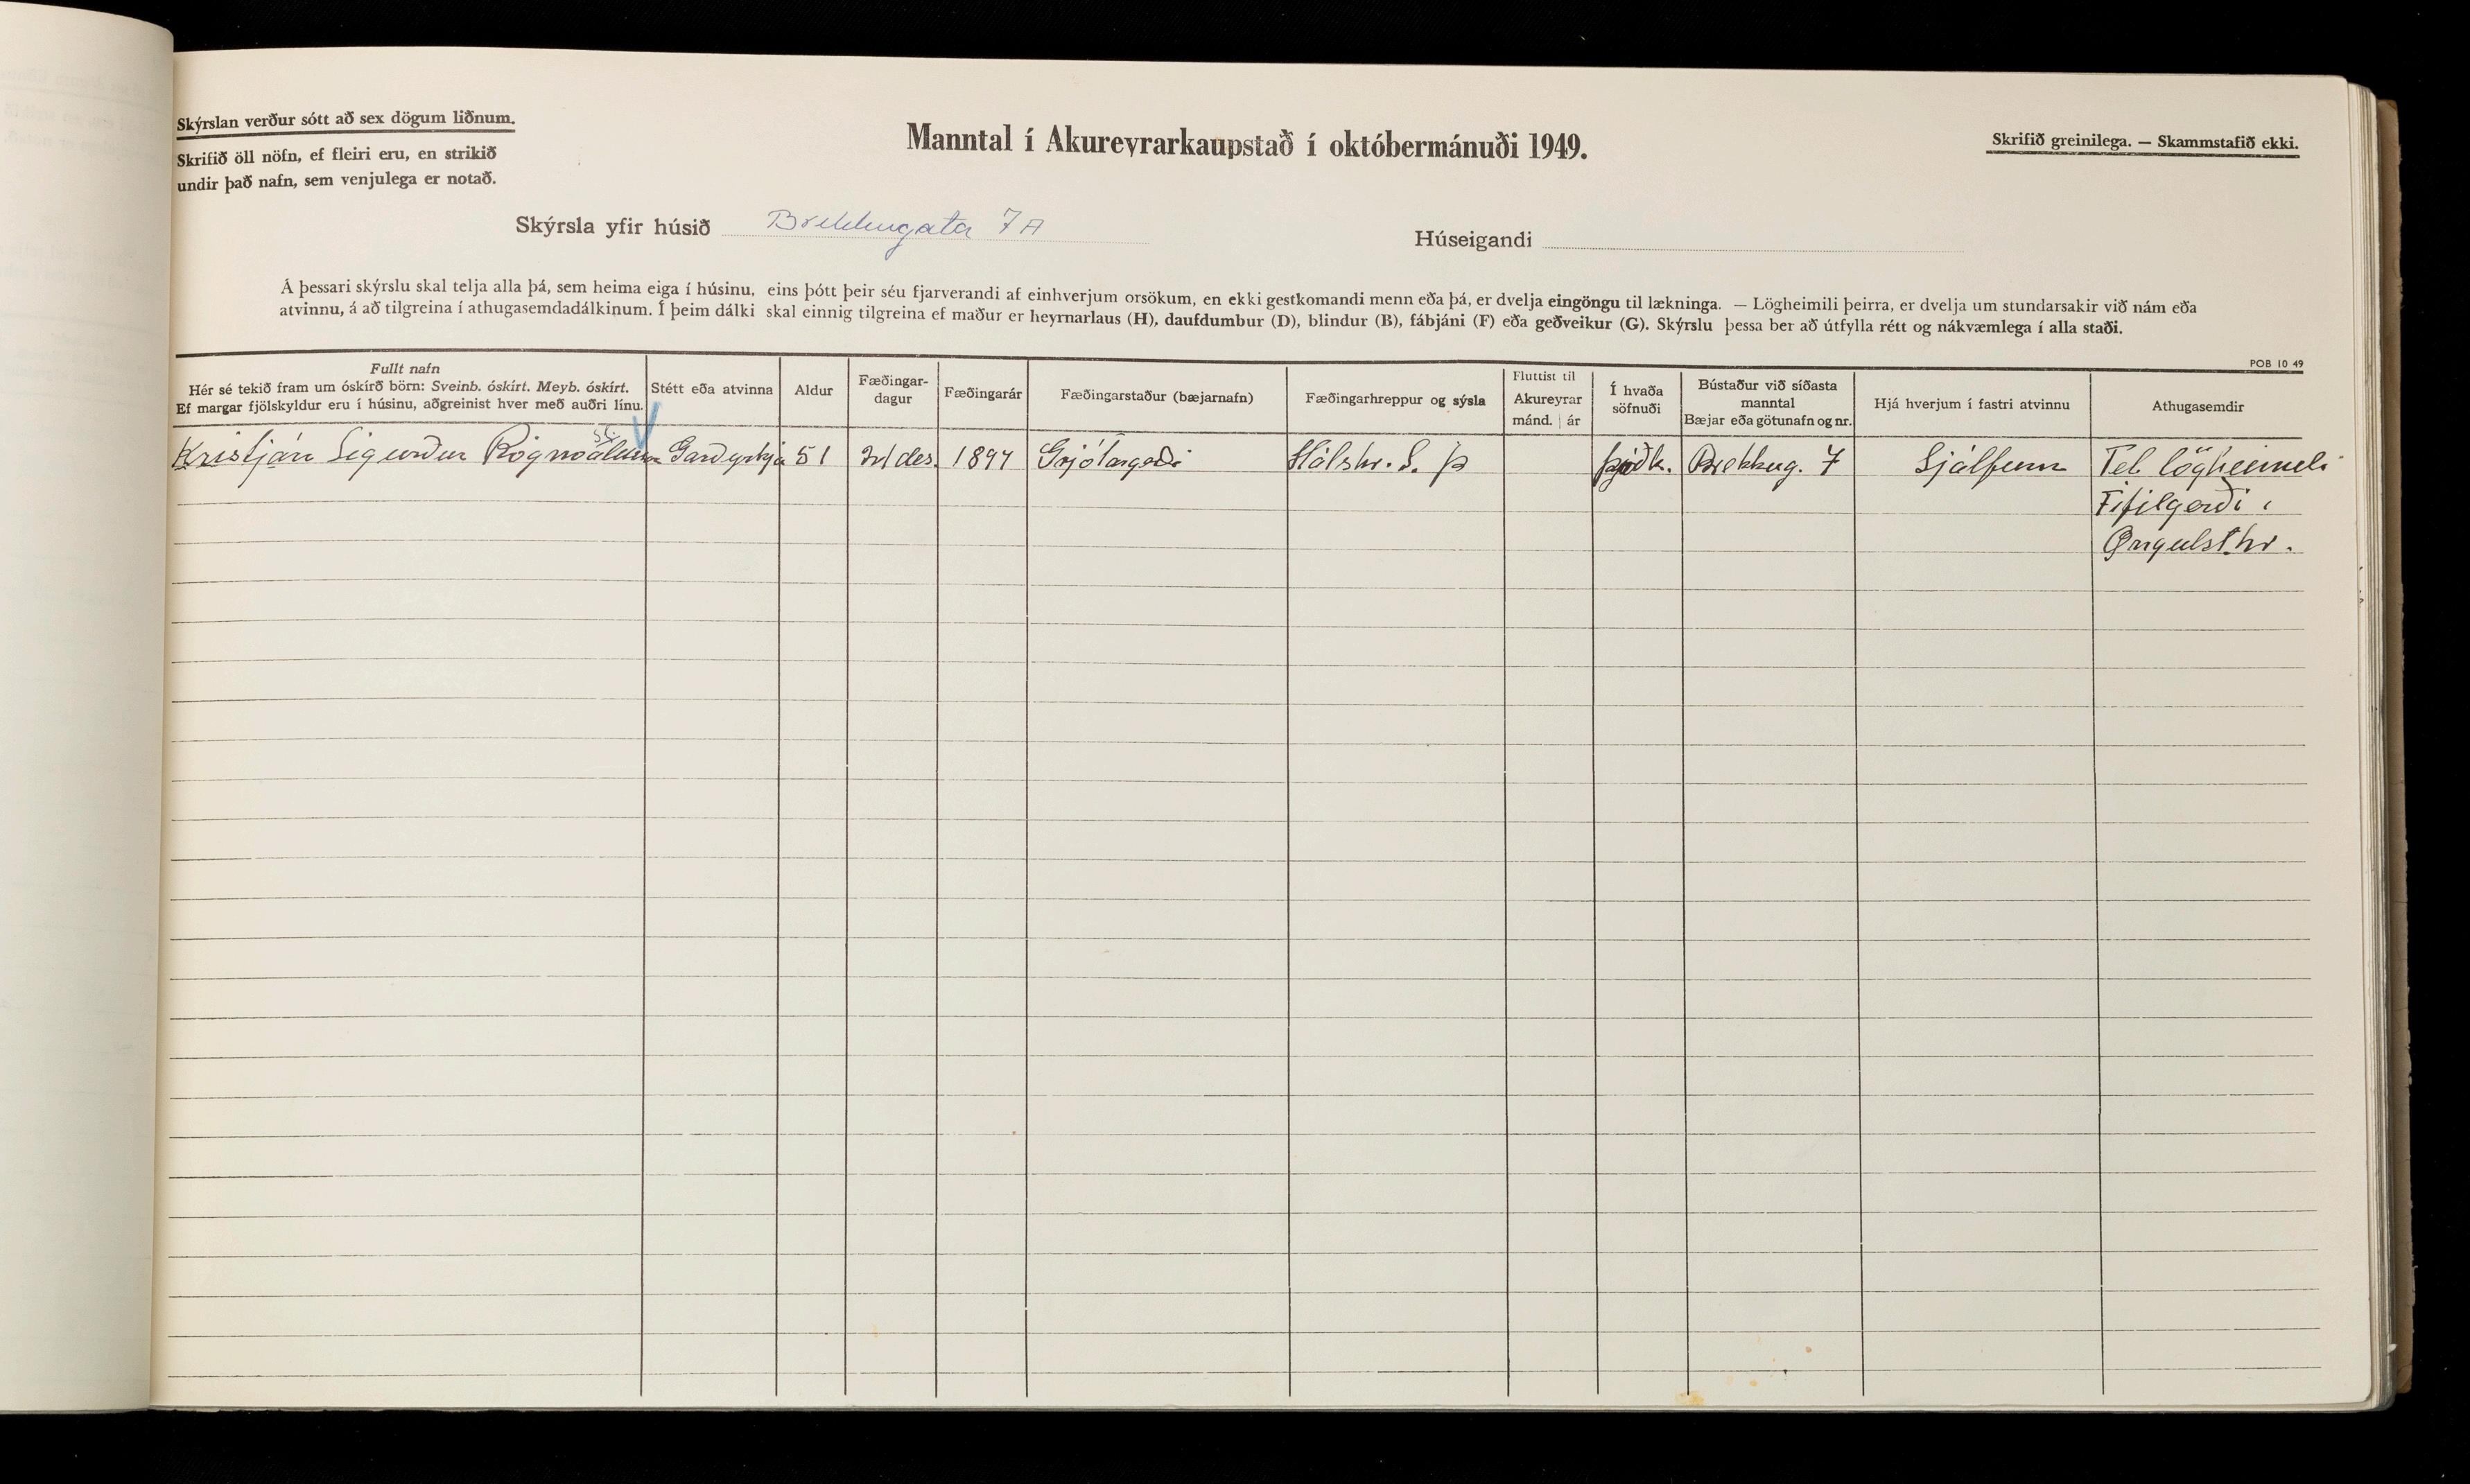 Skýrslan verður sótt að sex dögum liðnum.
Skrifið öll nöfn, ef fleiri eru, en strikið
undir það nafn, sem venjulega er notað.
Manntal í Akureyrarkaupstað í októbermánuði 1949.
Skrifið greinilega. — Skammstafið ekki.
Skýrsla yfir húsið Brekkugata 7A
Húseigandi
Á þessari skýrslu skal telja alla þá, sem heima eiga í húsinu, eins þótt þeir séu fjarverandi af einhverjum orsökum, en ekki gestkomandi menn eða þá, er dvelja eingöngu til lækninga. — Lögheimili þeirra, er dvelja um stundarsakir við nám eða
atvinnu, á að tilgreina í athugasemdadálkinum. Í þeim dálki skal einnig tilgreina ef maður er heyrnarlaus (H), daufdumbur (D), blindur (B), fábjáni (F) eða geðveikur (G). Skýrslu þessa ber að útfylla rétt og nákvæmlega í alla staði.
POB 10 49
Fullt nafn
Hér sé tekið fram um óskírð börn: Sveinb. óskírt. Meyb. óskírt.
Ef margar fjölskyldur eru í húsinu, aðgreinist hver með auðri línu.
Stétt eða atvinna
Aldur
Fæðingar-
dagur
Fæðingarár
Fæðingarstaður (bæjarnafn)
Fæðingarhreppur og sýsla
Fluttist til
Akureyrar
mánd. ár
Í hvaða
söfnuði
Bústaður við síðasta
manntal
Bæjar eða götunafn og nr.
Hjá hverjum í fastri atvinnu
Athugasemdir
Kristján Sigurður Rögnvaldsson Garðyrkja 51 des. 1897 Grjótargerði Hálshr. S. Þ Þjóðk. Brekkug. 7 Sjálfum Tel lögheimili
Fífilgerði í
Öngulsthr.